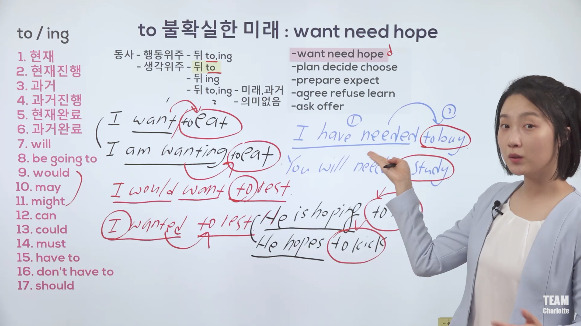 to / ing
1. 현재
2. 현재진행
3. 과거
4. 과거진행
5. 현재완료
6. 과거완료
7. will
8. be going to
9. would
10. may
11. might
12. can
13. could
14. must
15. have to
16. don't have to
17. should
to 불확실한 미래 : want need hope
동사 - 행동위주 - 뒤 to,ing
- 생각위주 - 뒤 to
- 뒤 ing
- 뒤 to,ing - 미래,과거
- 의미없음
-want need hope d
-plan decide choose
-prepare expect
-agree refuse learn
-ask offer
I want to eat
I am wanting to eat
I would want to rest
I wanted to rest
① ②
I have needed to buy
You will need study
He is hoping to
He hopes to kick
TEAM
Charlotte